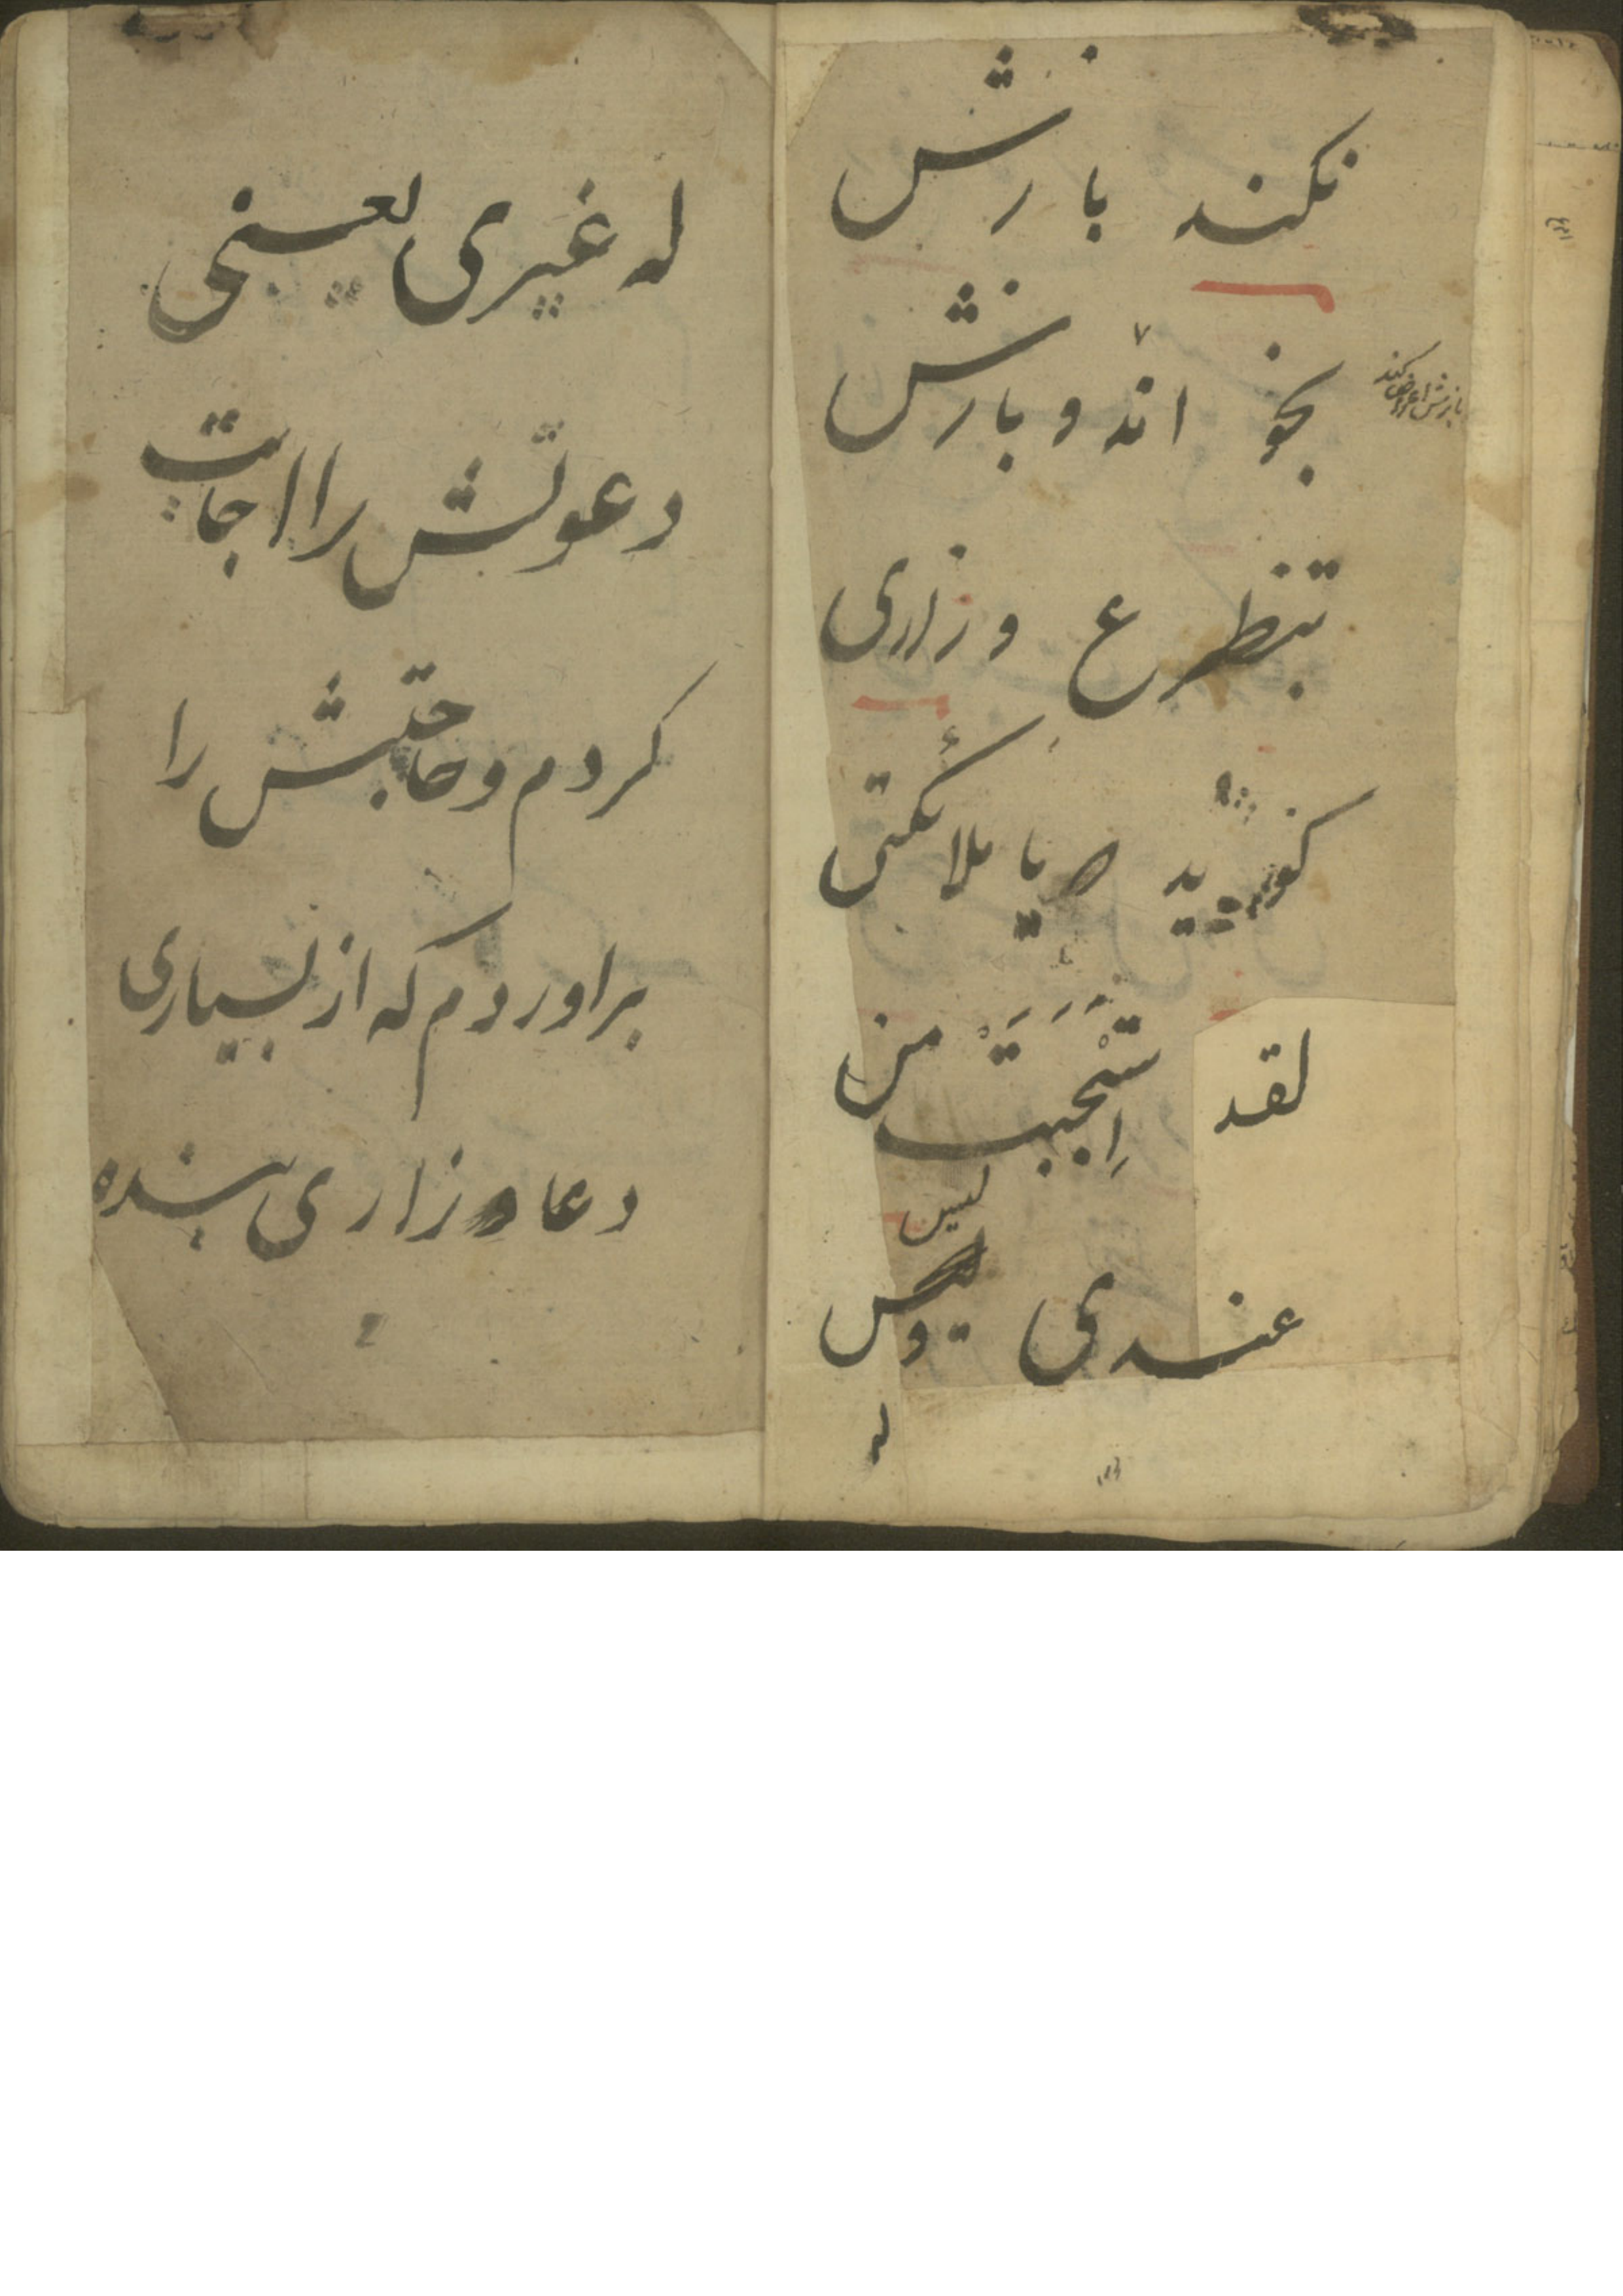 نکند بازش
بخواند و بازش
بازش اعراض کند
بتظرع و زاری
کوید یا ملائکتی
لقد استجبت من
عندی و لیس
لیس
له
له غیری یعنی
دعوتش را اجابت
کردم و حاجتش را
براوردم که از بسیاری
دعا و زاری بنده